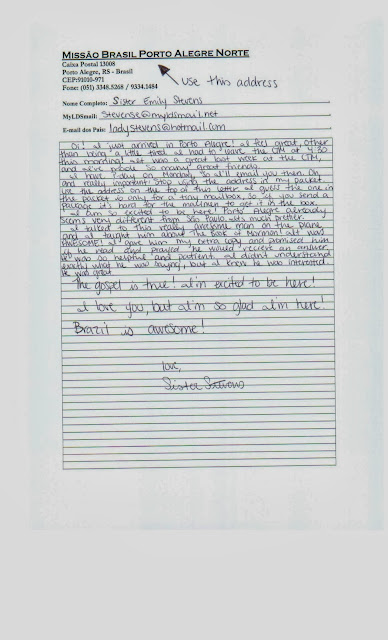 MISSÃO BRASIL PORTO ALEGRE NORTE
Caixa Postal 13008
Porto Alegre, RS - Brasil
CEP:91010-971
Fone: (051) 3348.5268 / 9334.1484
use this address
Nome Completo: Sister Emily Stevens
MyLDSmail: stevense@myldsmail.net
E-mail dos Pais: ladystevens@hotmail.com
Oi! I just arrived in Porto Alegre! I feel great, other
than being a little tired. I had to leave the CTM at 4:30
this morning! It was a great last week at the CTM,
and I've made so many great friends.
I have P-day on Monday, so I'll email you then. Oh
and really important: Stop using the address in my packet.
Use the address on the top of this letter. I guess the one in
the packet is only for a tiny mailbox, so if you send a
package it's hard for the mailmen to get it in the box.
I am so excited to be here! Porto Alegre already
seems very different from São Paulo. It's much prettier.
I talked to this really awesome man on the plane
and I taught him about the Book of Mormon! It was
AWESOME! I gave him my extra copy and promised him
if he read and prayed he would receive an answer.
He was so helpful and patient. I didn't understand
exactly what he was saying, but I knew he was interested.
It was great.
The gospel is true! I'm excited to be here!
I love you, but I'm so glad I'm here!
Brazil is awesome!
love,
Sister Stevens